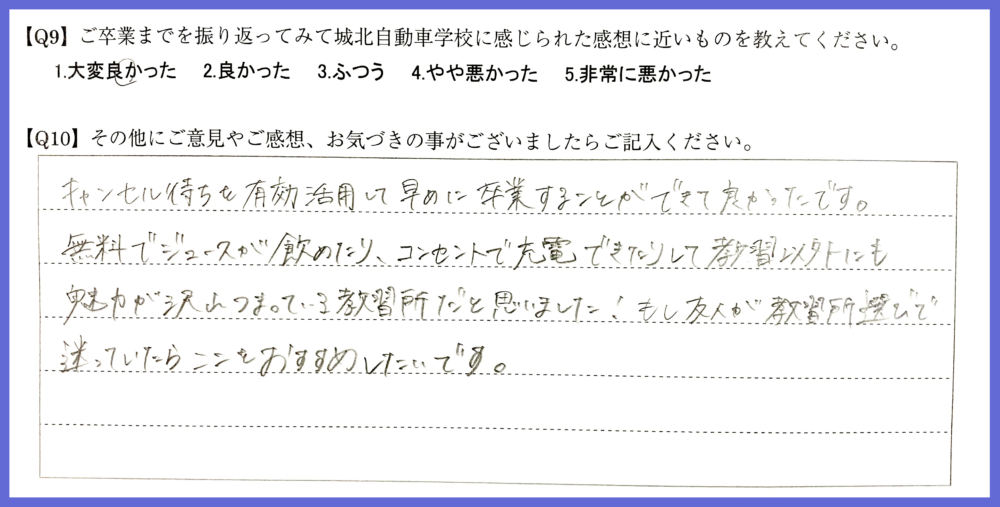 【Q9】ご卒業までを振り返ってみて城北自動車学校に感じられた感想に近いものを教えてください。
1.大変良かった 2.良かった 3.ふつう 4.やや悪かった 5.非常に悪かった
【Q10】その他にご意見やご感想、お気づきの事がございましたらご記入ください。
キャンセル待ちを有効活用して早めに卒業することができて良かったです。
無料でジュースが飲めたり、コンセントで充電できたりして教習以外にも
魅力が沢山つまっている教習所だと思いました!もし友人が教習所選びで
迷っていたらここをおすすめしたいです。